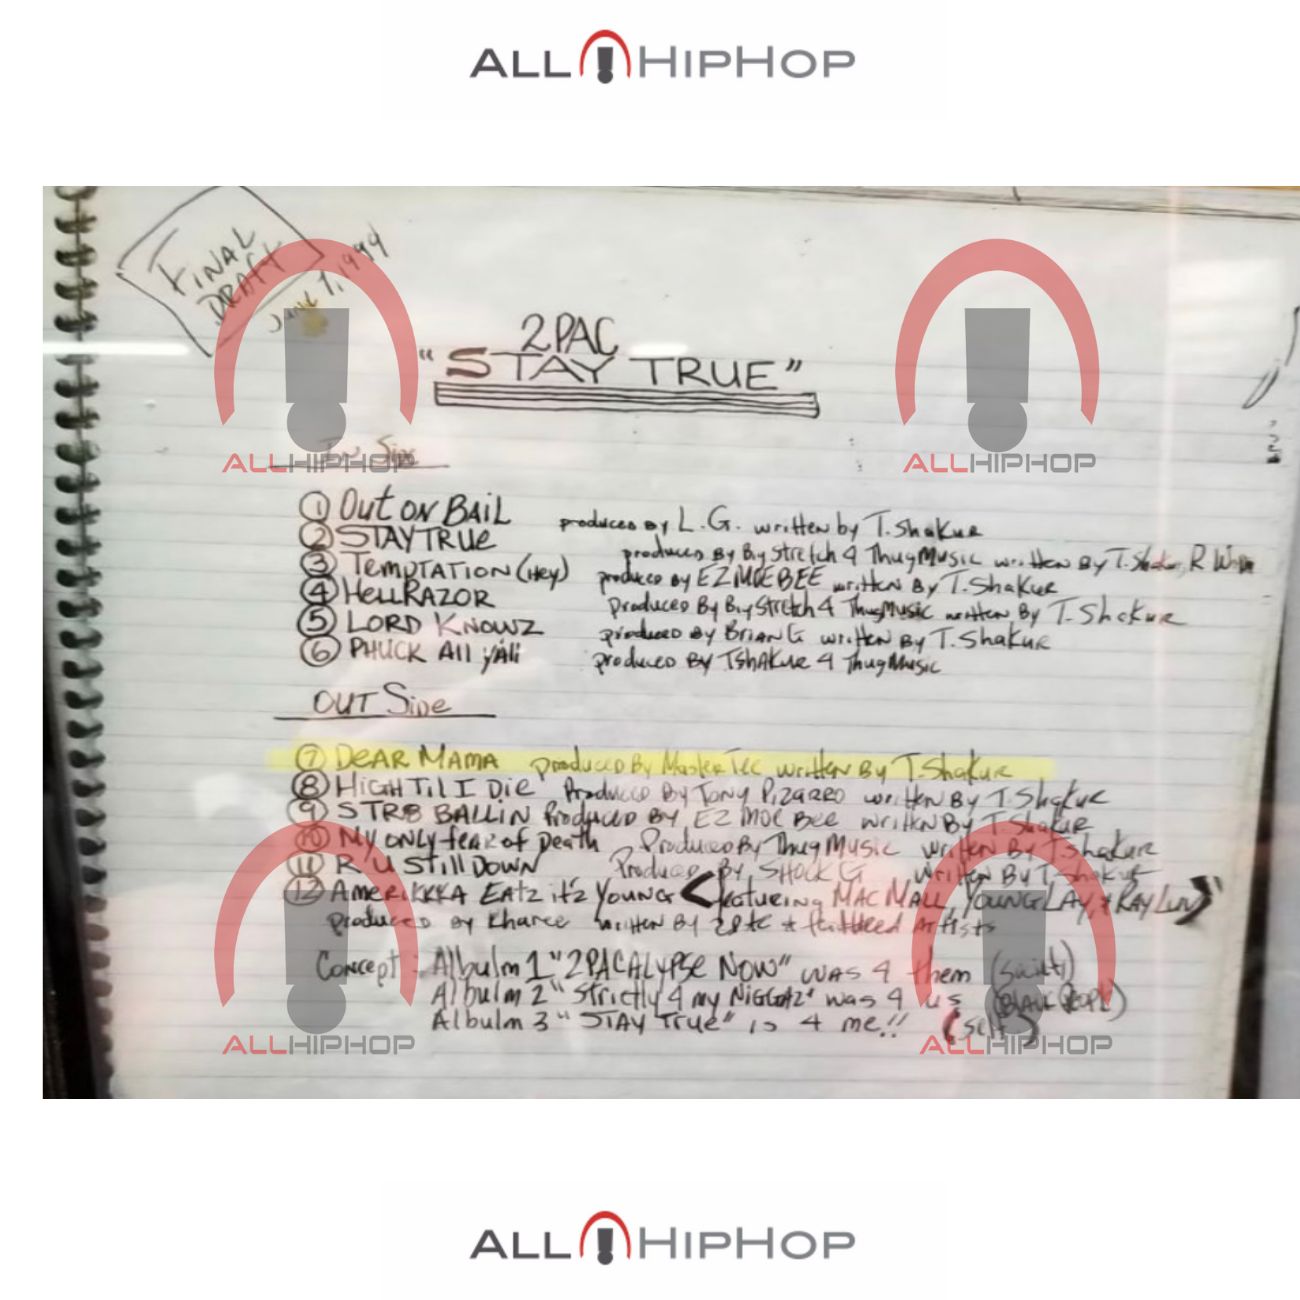 ALL HIPHOP
FINAL
DRAFT
1, 1994
2PAC
"STAY TRUE"
In Side
ALLHIPHOP ALLHIPHOP
① Out on Bail produced by L.G. written by T. Shakur
② STAY TRUE produced By Big Stretch 4 Thug Music written By T. Shakur, R
③ Temptation (Hey) produced by EZ MOE BEE written By T. Shakur
④ HellRazor Produced By Big Stretch 4 Thug Music written By T. Shakur
⑤ LORD KNOWZ produced By Brian G written By T. Shakur
⑥ PHUCK All y'all produced By TShakur 4 Thug Music
OUT Side
⑦ Dear Mama produced By Master Tec written By T. Shakur
⑧ High Til I Die Produced By Tony Pizarro written By T. Shakur
⑨ STR8 BALLIN Produced By EZ MOE Bee written By T. Shakur
⑩ My only fear of Death Produced By Thug Music written By T. Shakur
⑪ R U Still DOWN Produced By SHOCK G written By T. Shakur
⑫ AmeriKKKA Eatz it'z Young <featuring MAC MALL, YOUNG LAY, + RAY LUV>
produced by Khalee written By 2pac + featured Artists
Concept : Albulm 1 "2PACALYPSE NOW" was 4 them (society)
Albulm 2 "Strictly 4 my Niggaz" was 4 us (Black People)
Albulm 3 "STAY True" is 4 me!! (self)
ALLHIPHOP ALLHIPHOP
ALL HIPHOP